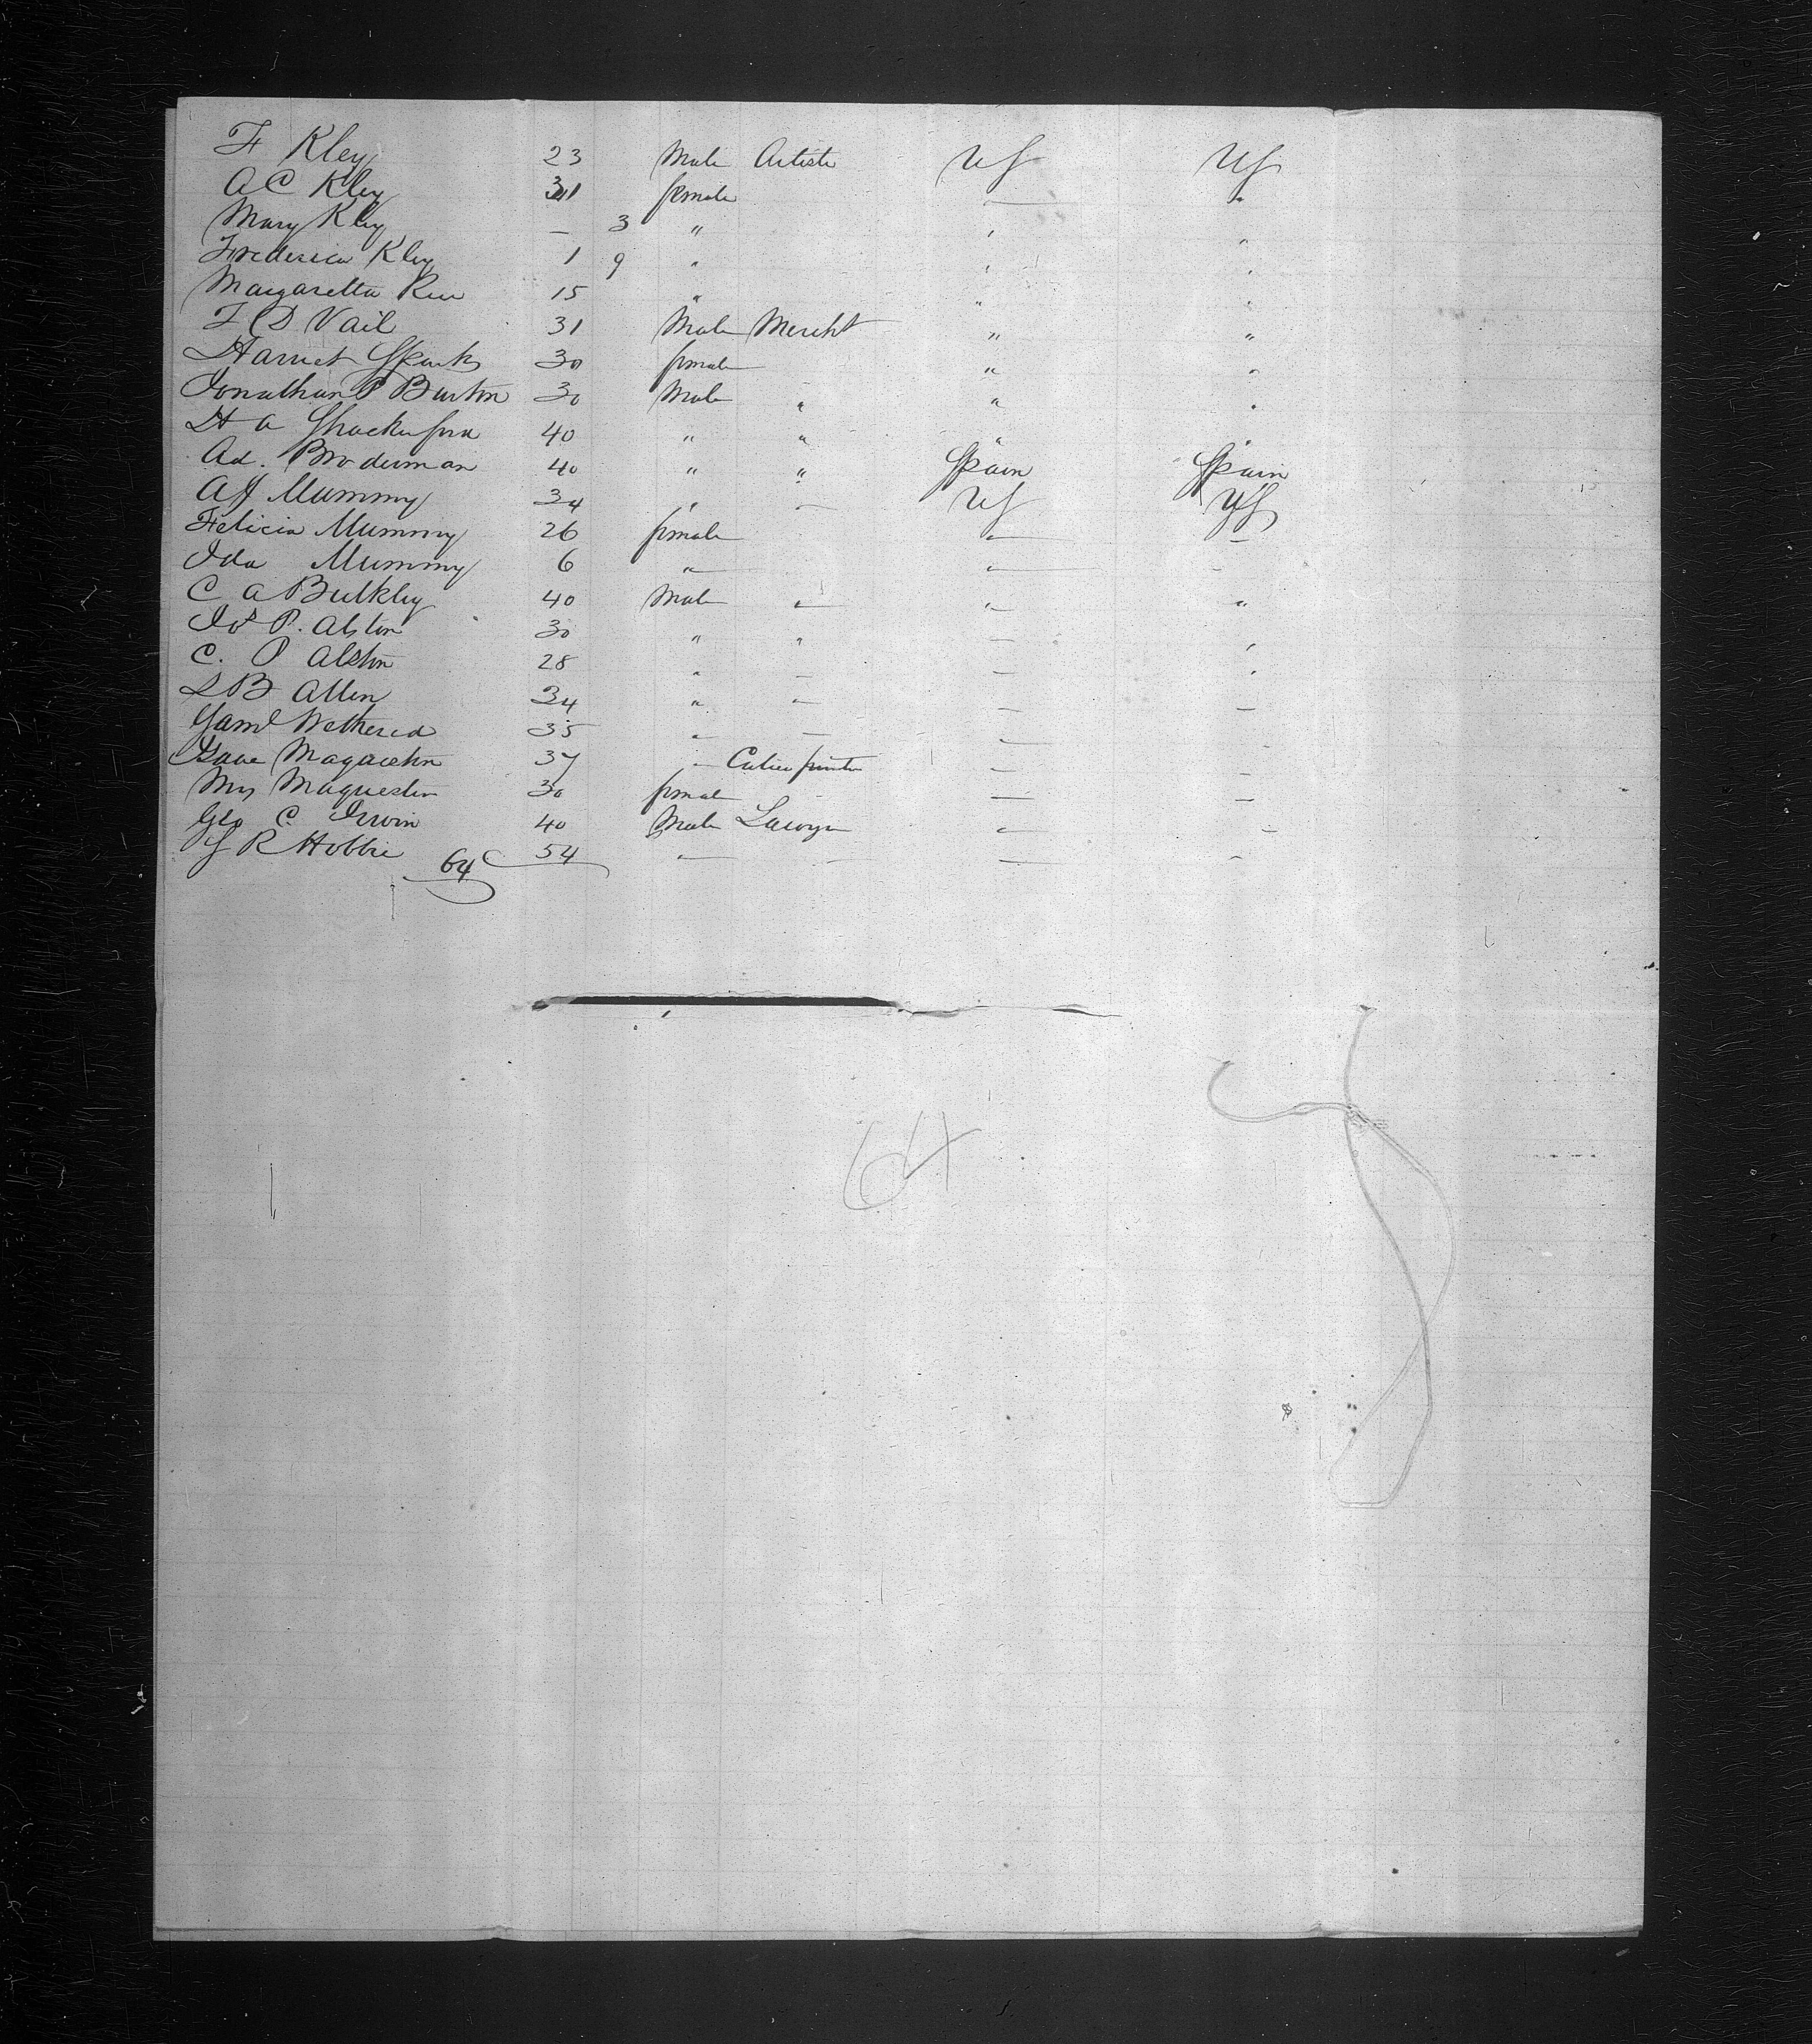 F Kley 23 Male Artiste US US
A C Kley 31 female — "
Mary Kley — 3 " " "
Frederica Kley 1 9 " " "
Margaretta 15 " " "
F D Vail 31 Male Mercht " "
Harriet Spark 30 female " "
Jonathan P Burton 30 Male " " "
H A Shackelford 40 " " " "
Ad. Broderman 40 " " Spain Spain
A J Mummy 34 " — US US
Felicia Mummy 26 female " —
Ida Mummy 6 " " —
C A Bulkley 40 Male " " "
Jos P. Alston 30 " " — "
C. P Alston 28 " — — "
S B Allen 34 " " — —
Saml Wethered 35 " — " -
37 " — —
Mrs 30 female — —
Geo C. Irwin 40 Male Lawyer " —
S R Hobbie 54 " — — "
64
64